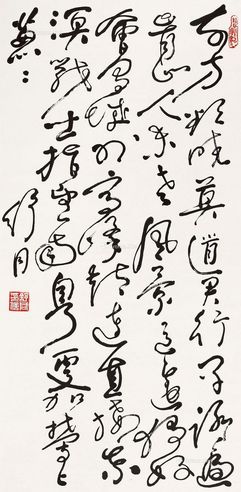 东方欲晓莫道君行早踏遍
青山人未老风景这边独好
会昌城外高峰颠连直接东
溟战士指看南粤更加郁々
葱々
舒同